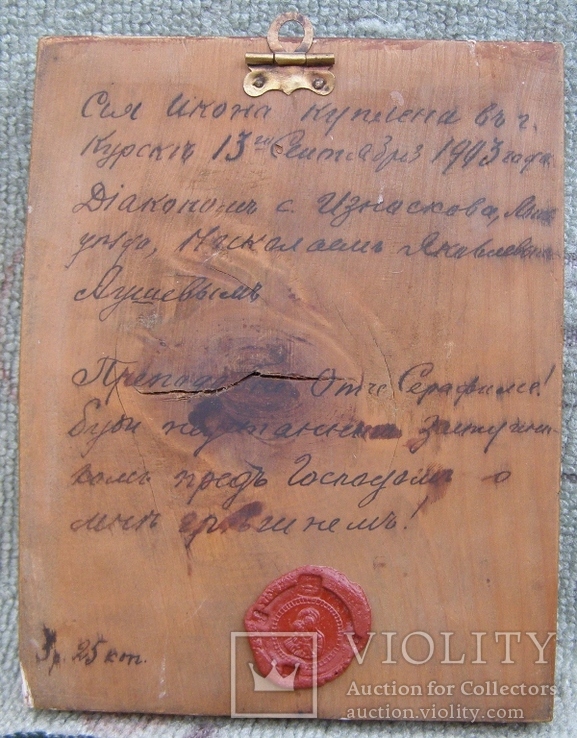 Сiя Икона куплена въ г.
Курскѣ 13го Сентября 1903 года
Дiакономъ с. Изнаскова,
уѣзда, Николаемъ Яковлевичемъ
Лушевымъ
Преподобне Отче Серафиме!
буди неустаннымъ Заступни-
комъ предъ Господомъ о
мнѣ грѣшнемъ!
3 р. 25 коп.
VIOLITY
Auction for Collectors
auction.violity.com